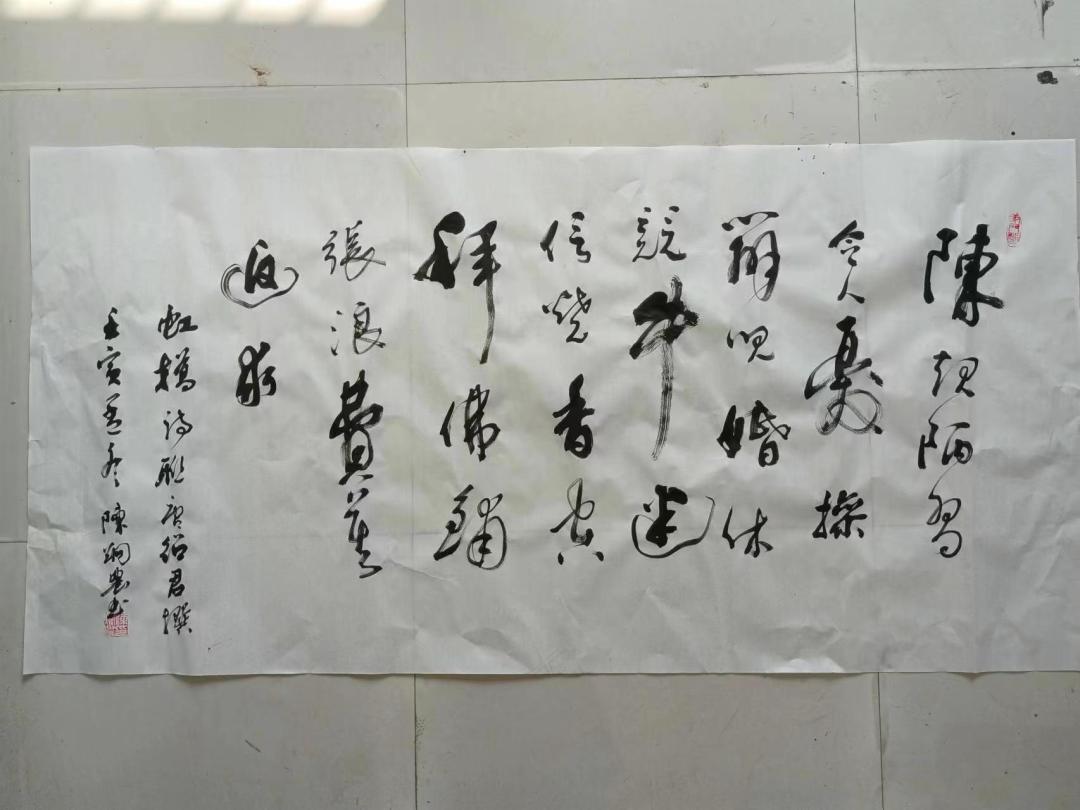 陳規陋習
令人憂操
辦婚休
競迷
信燒香空
拜佛鋪
張浪費莫
虹橋詩聯唐紹君撰
壬寅孟冬陳炯書